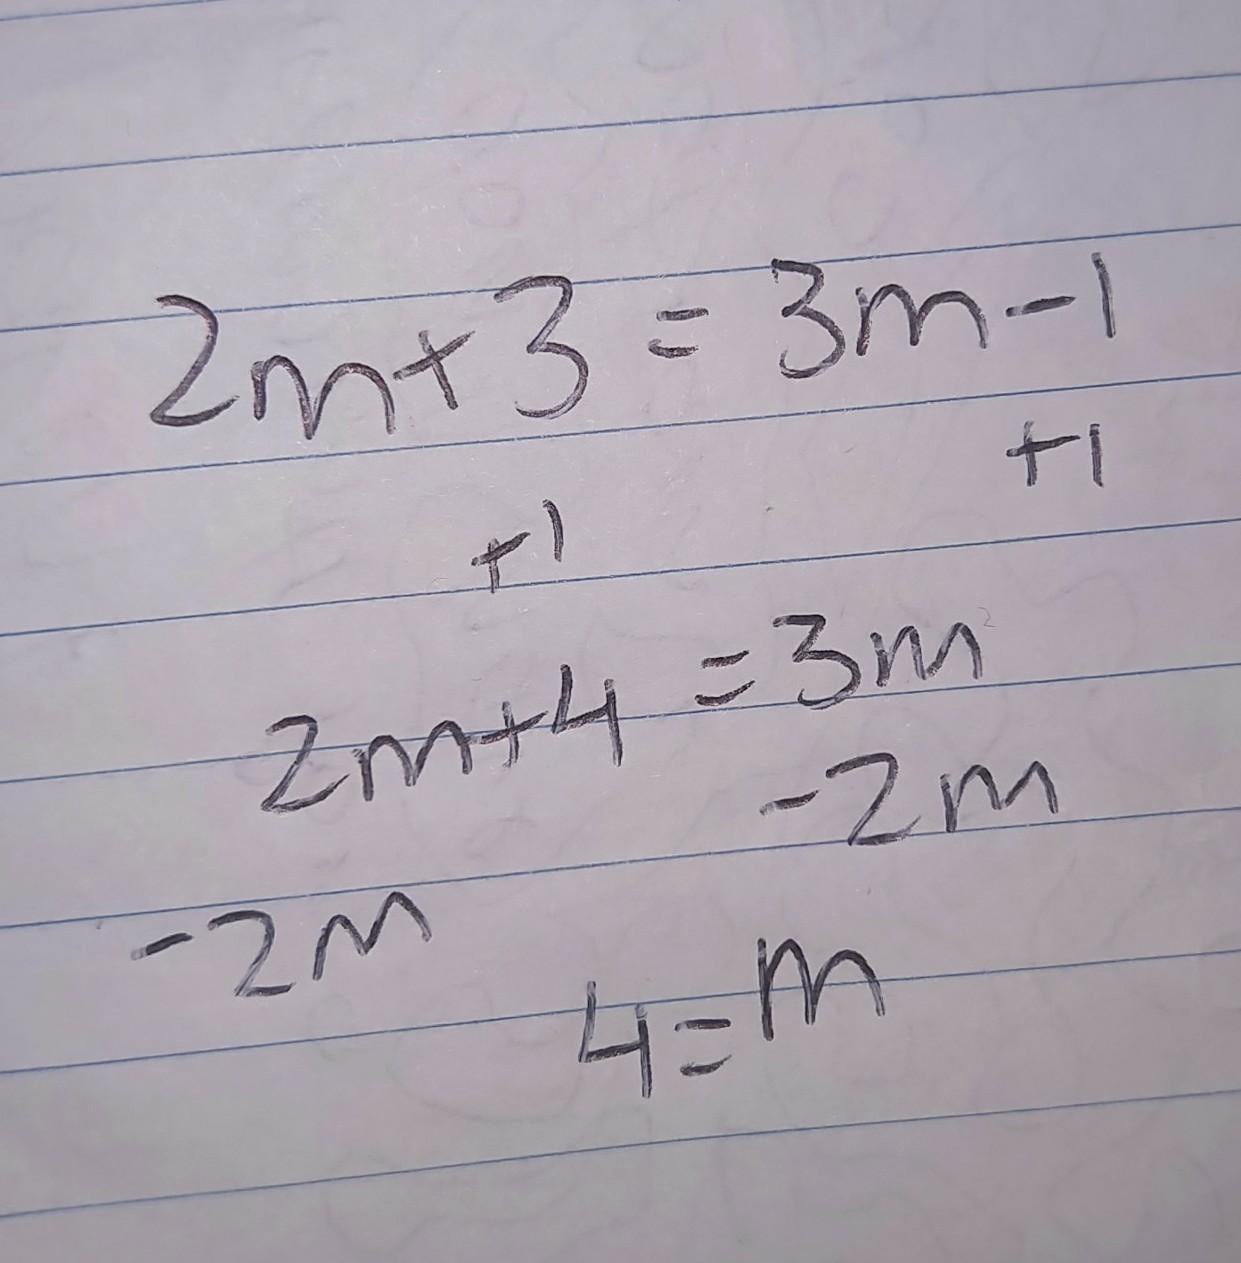 2m+3 = 3m-1
+1
+1
2m+4 = 3m
-2m
-2m
4=m